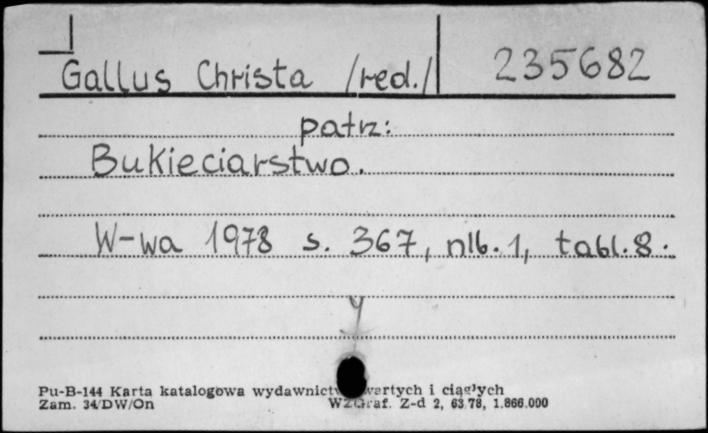 Gallus Christa /red./ 235682
patrz:
Bukieciarstwo.
W-wa 1978 s. 367, nlb. 1, tabl. 8.
Pu-B-144 Karta katalogowa wydawnictw zwartych i ciągłych
Zam. 34/DW/On WZGraf. Z-d 2, 63.78, 1.866.000